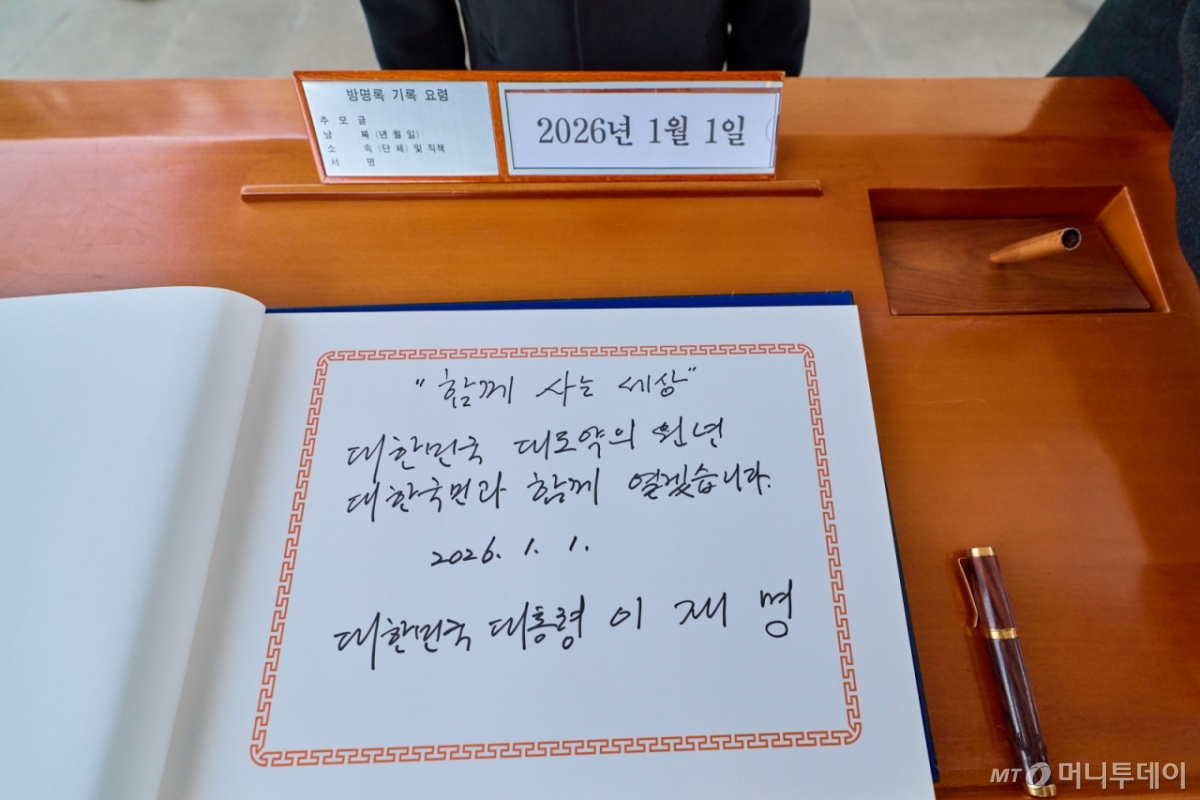 방명록 기록 요령
추 모 글
날 짜 (년 월 일)
소 속 (단 체) 및 직책
서 명
2026년 1월 1일
"함께 사는 세상"
대한민국 대도약의 원년
대한국민과 함께 열겠습니다.
2026. 1. 1.
대한민국 대통령 이 재 명
MT 머니투데이